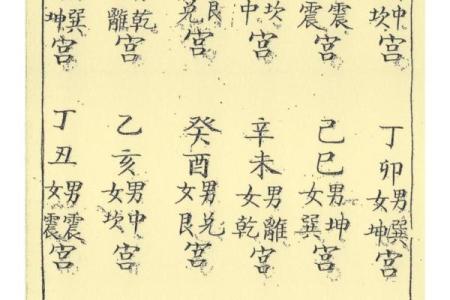 中坎宮
丁卯男巽女坤宮
震震宮
己巳男坤女巽宮
坎中宮
辛未男離女乾宮
艮兌宮
癸酉男兌女艮宮
乾離宮
乙亥男中女坎宮
巽坤宮
丁丑男震女震宮